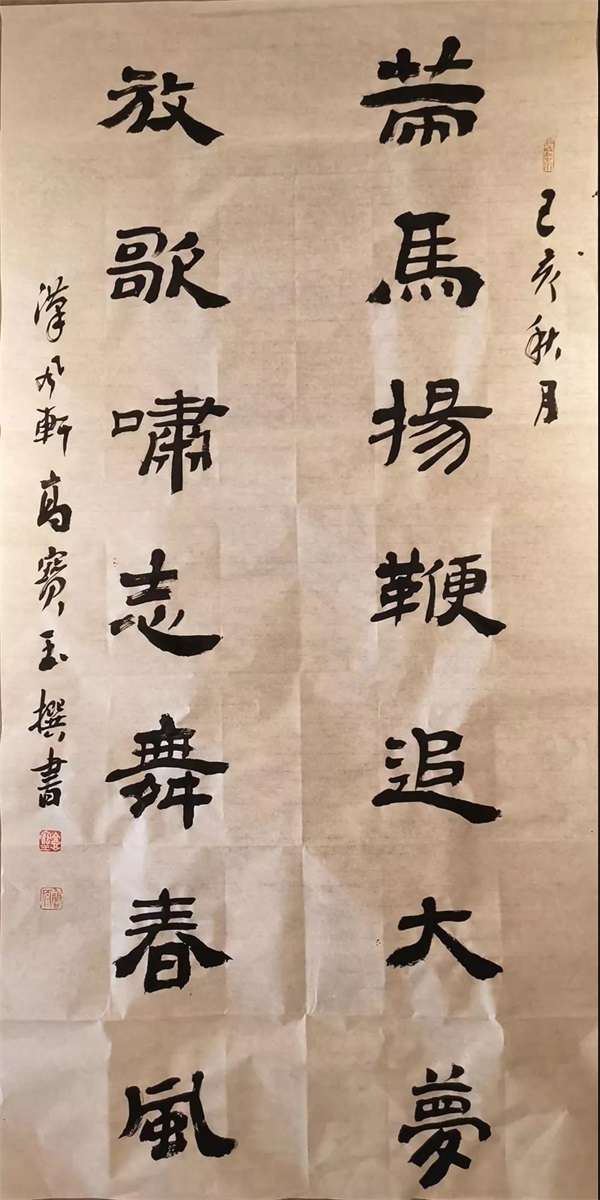 己亥秋月
策馬揚鞭追大夢
放歌嘯志舞春風
漢風軒高寶玉撰書